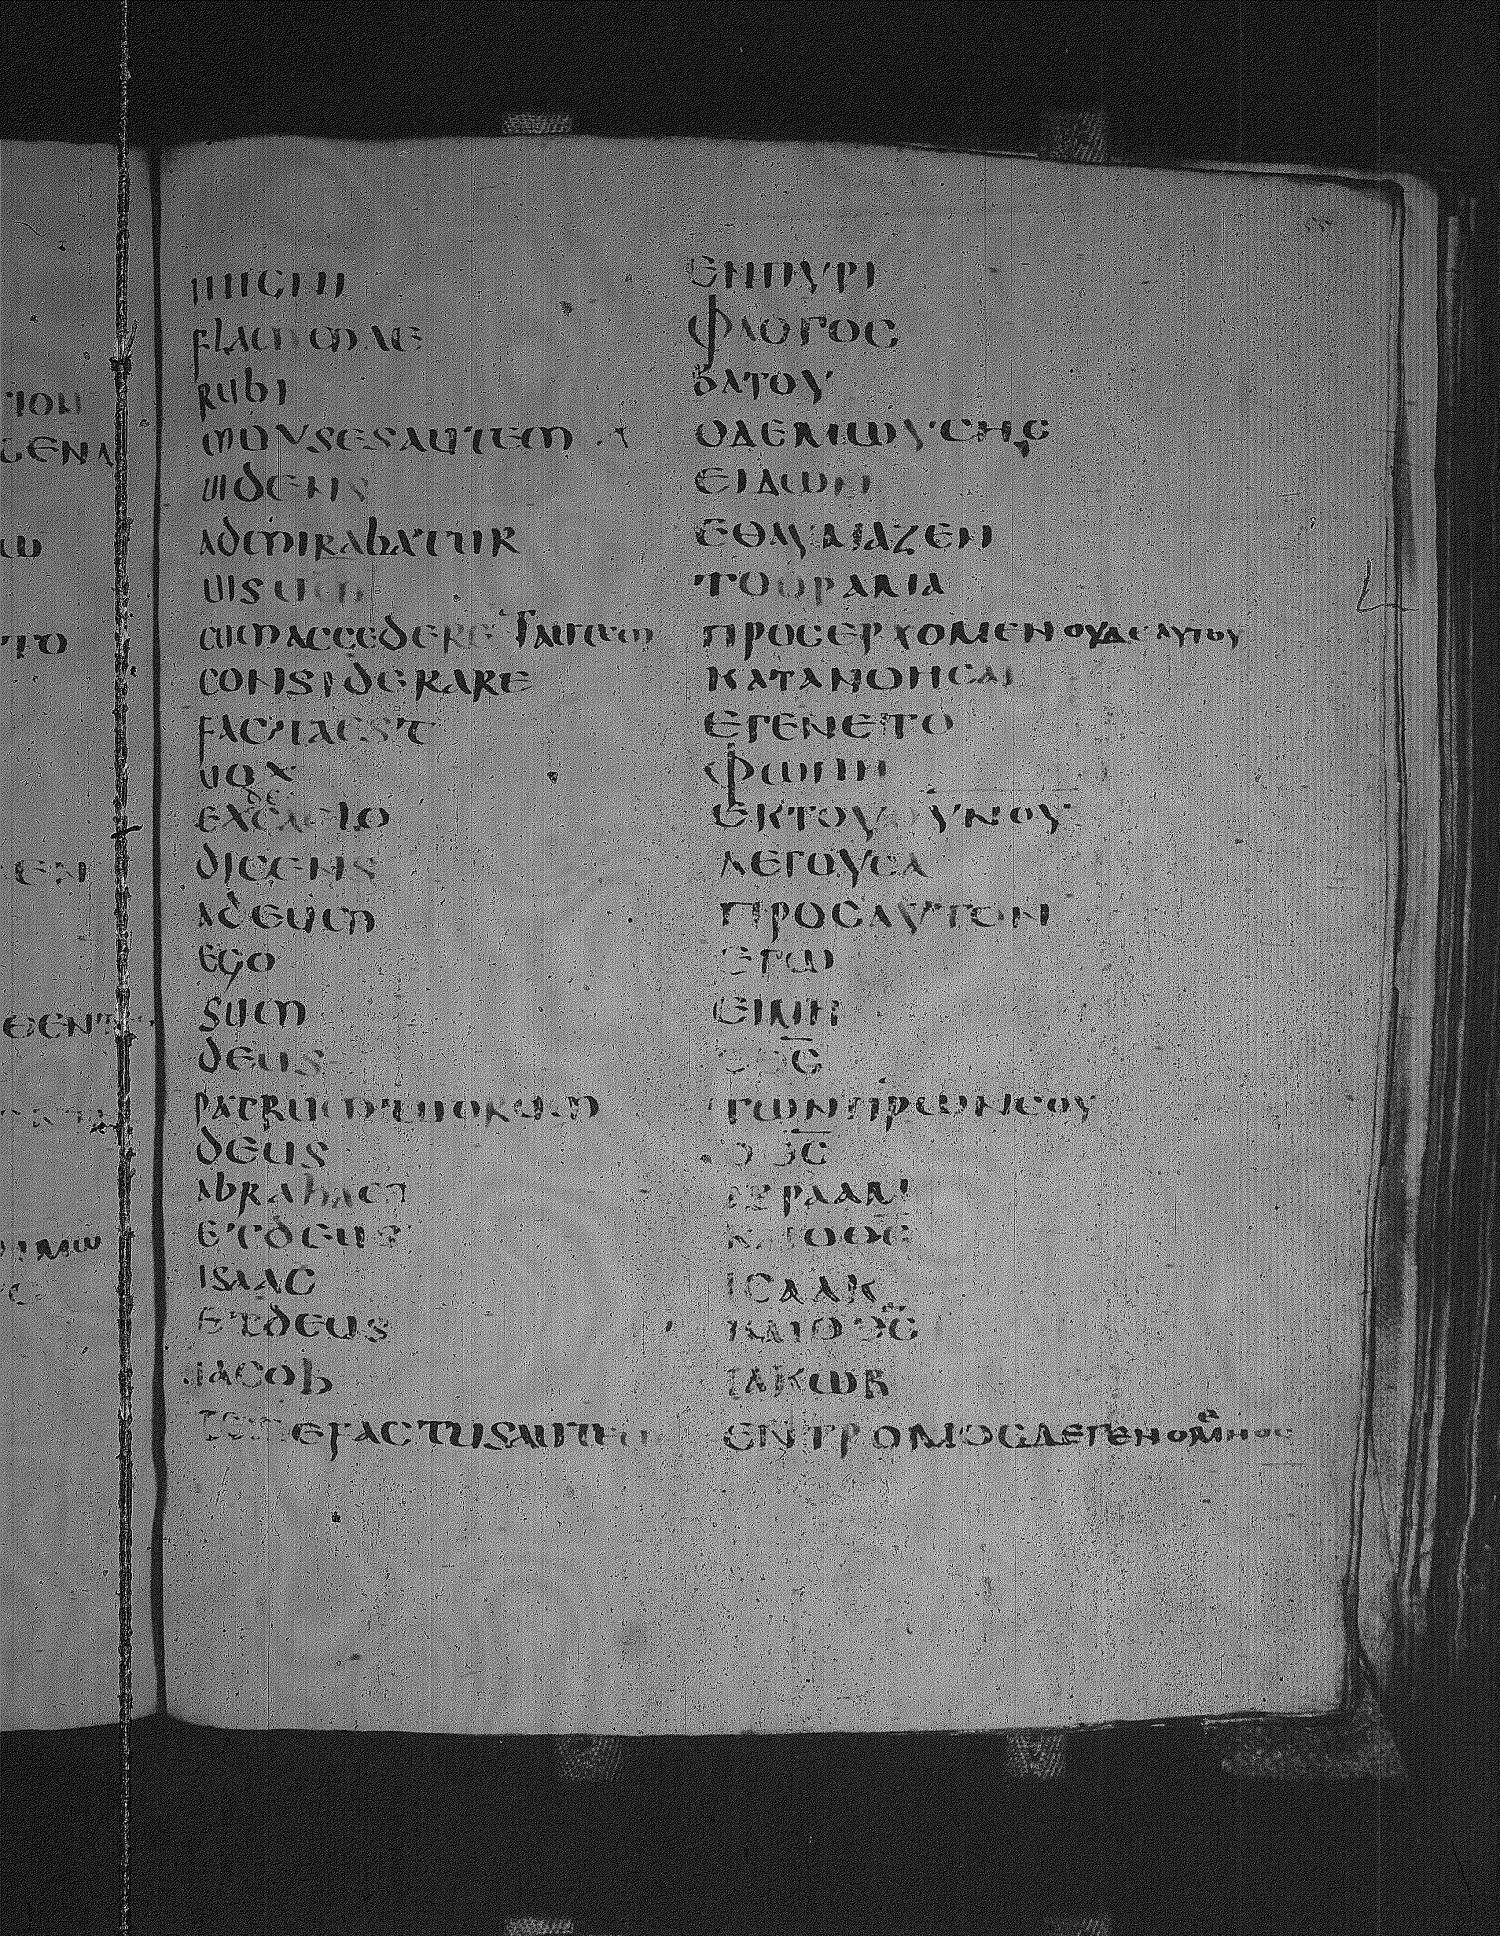 INIGNI
FLAMMAE
RUBI
MOYSESAUTEM
UIDENS
ADMIRABATUR
UISUM
CUMACCEDERETAUTEM
CONSIDERARE
FACTAEST
UOX
DE
EXCAELO
DICENS
ADEUM
EGO
SUM
DEUS
PATRUMTUORUM
DEUS
ABRAHAM
ETDEUS
ISAAC
ETDEUS
IACOB
TREMEFACTUSAUTEM
ΕΝΠΥΡΙ
ΦΛΟΓΟϹ
ΒΑΤΟΥ
ΟΔΕΜΩΥϹΗϹ
ΕΙΔΩΝ
ΕΘΑΥΜΑΖΕΝ
ΤΟΟΡΑΜΑ
ΠΡΟϹΕΡΧΟΜΕΝΟΥΔΕΑΥΤΟΥ
ΚΑΤΑΝΟΗϹΑΙ
ΕΓΕΝΕΤΟ
ΦΩΝΗ
ΕΚΤΟΥΟΥΝΟΥ
ΛΕΓΟΥϹΑ
ΠΡΟϹΑΥΤΟΝ
ΕΓΩ
ΕΙΜΗ
ΟΘ̅Ϲ̅
ΤΩΝΠΡ̅ΩΝϹΟΥ
ΟΘ̅Ϲ̅
ΑΒΡΑΑΜ
ΚΑΙΟΘ̅Ϲ̅
ΙϹΑΑΚ
ΚΑΙΟΘ̅Ϲ̅
ΙΑΚΩΒ
ΕΝΤΡΟΜΟϹΔΕΓΕΝΟΜΗΝΟϹ